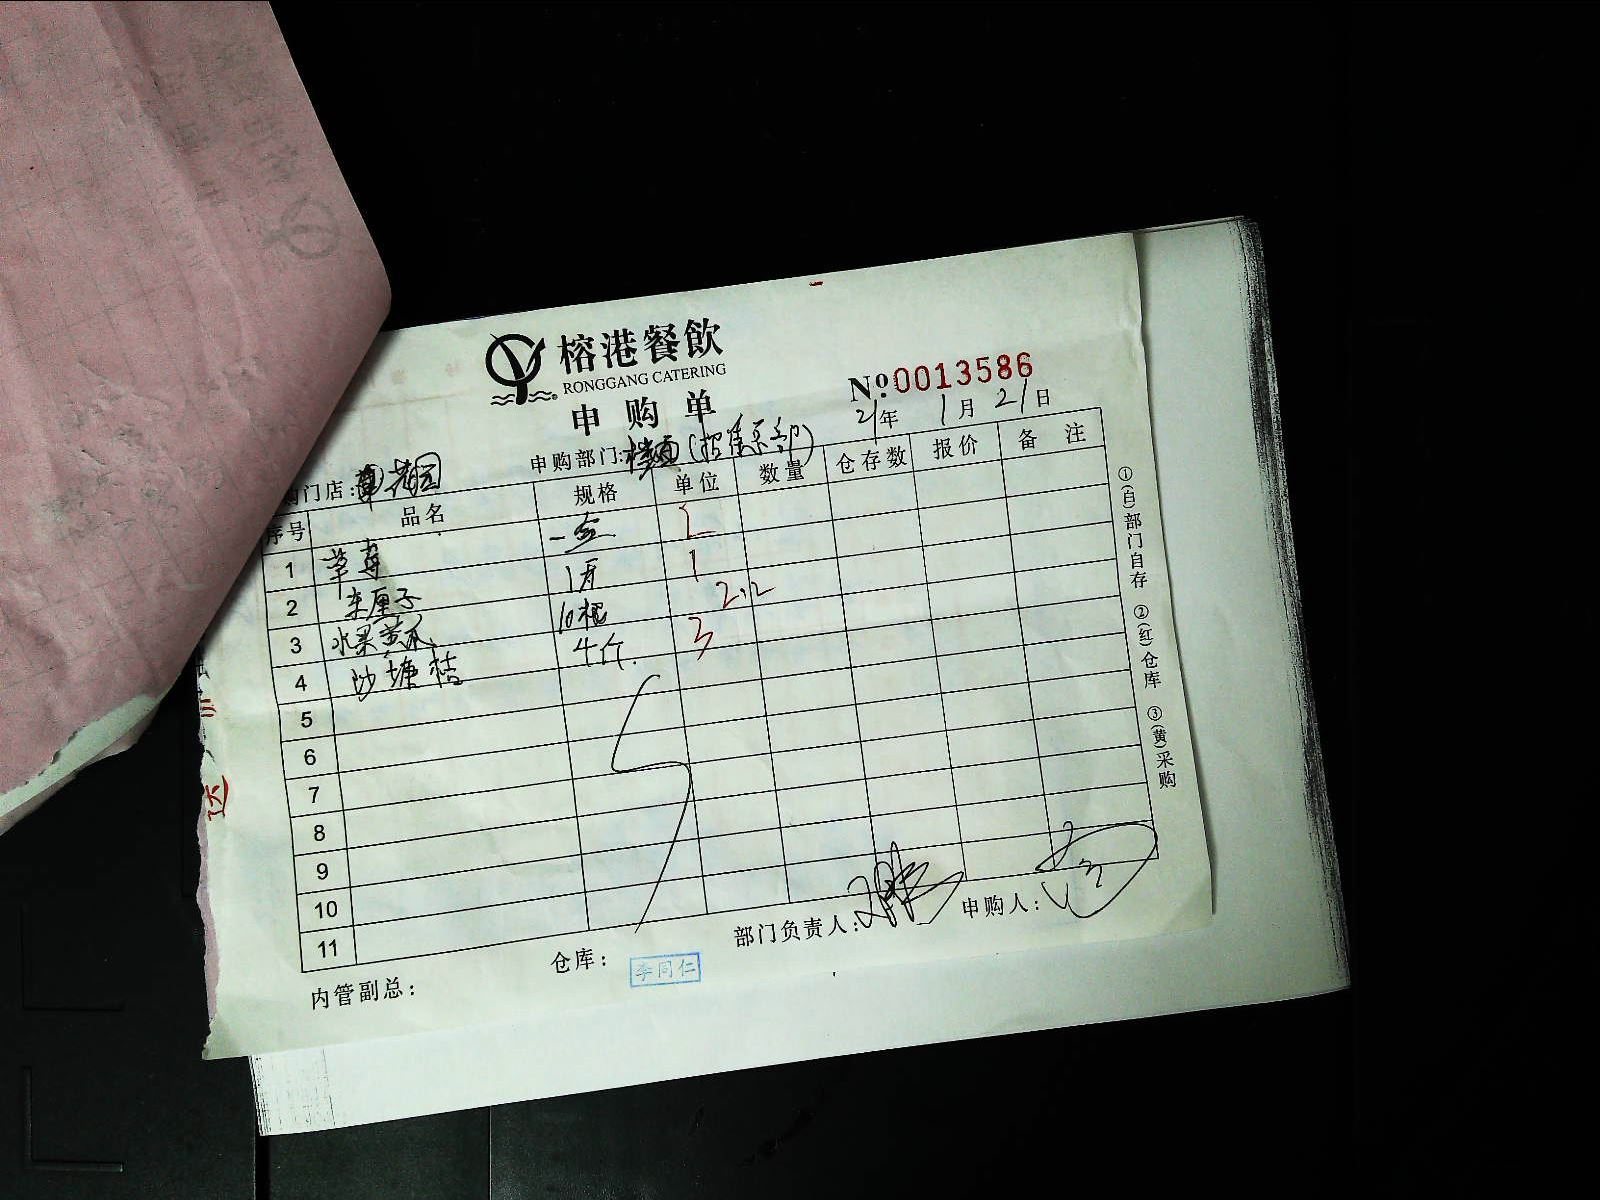 榕港餐飲
RONGGANG CATERING
申购单
No.0013586
21年 1月 21日
购门店: 花园
申购部门:楼面(招集部)
序号 品名 规格 单位 数量 仓存数 报价 备注
1 草莓 一盒 2
2 车厘子 1斤 1
3 水果黄瓜 10根 2.2
4 沙塘桔 4斤. 3
5
6
7
8
9
10
11
①(白)部门自存 ②(红)仓库 ③(黄)采购
内管副总:
仓库: 李同仁
部门负责人:
申购人: